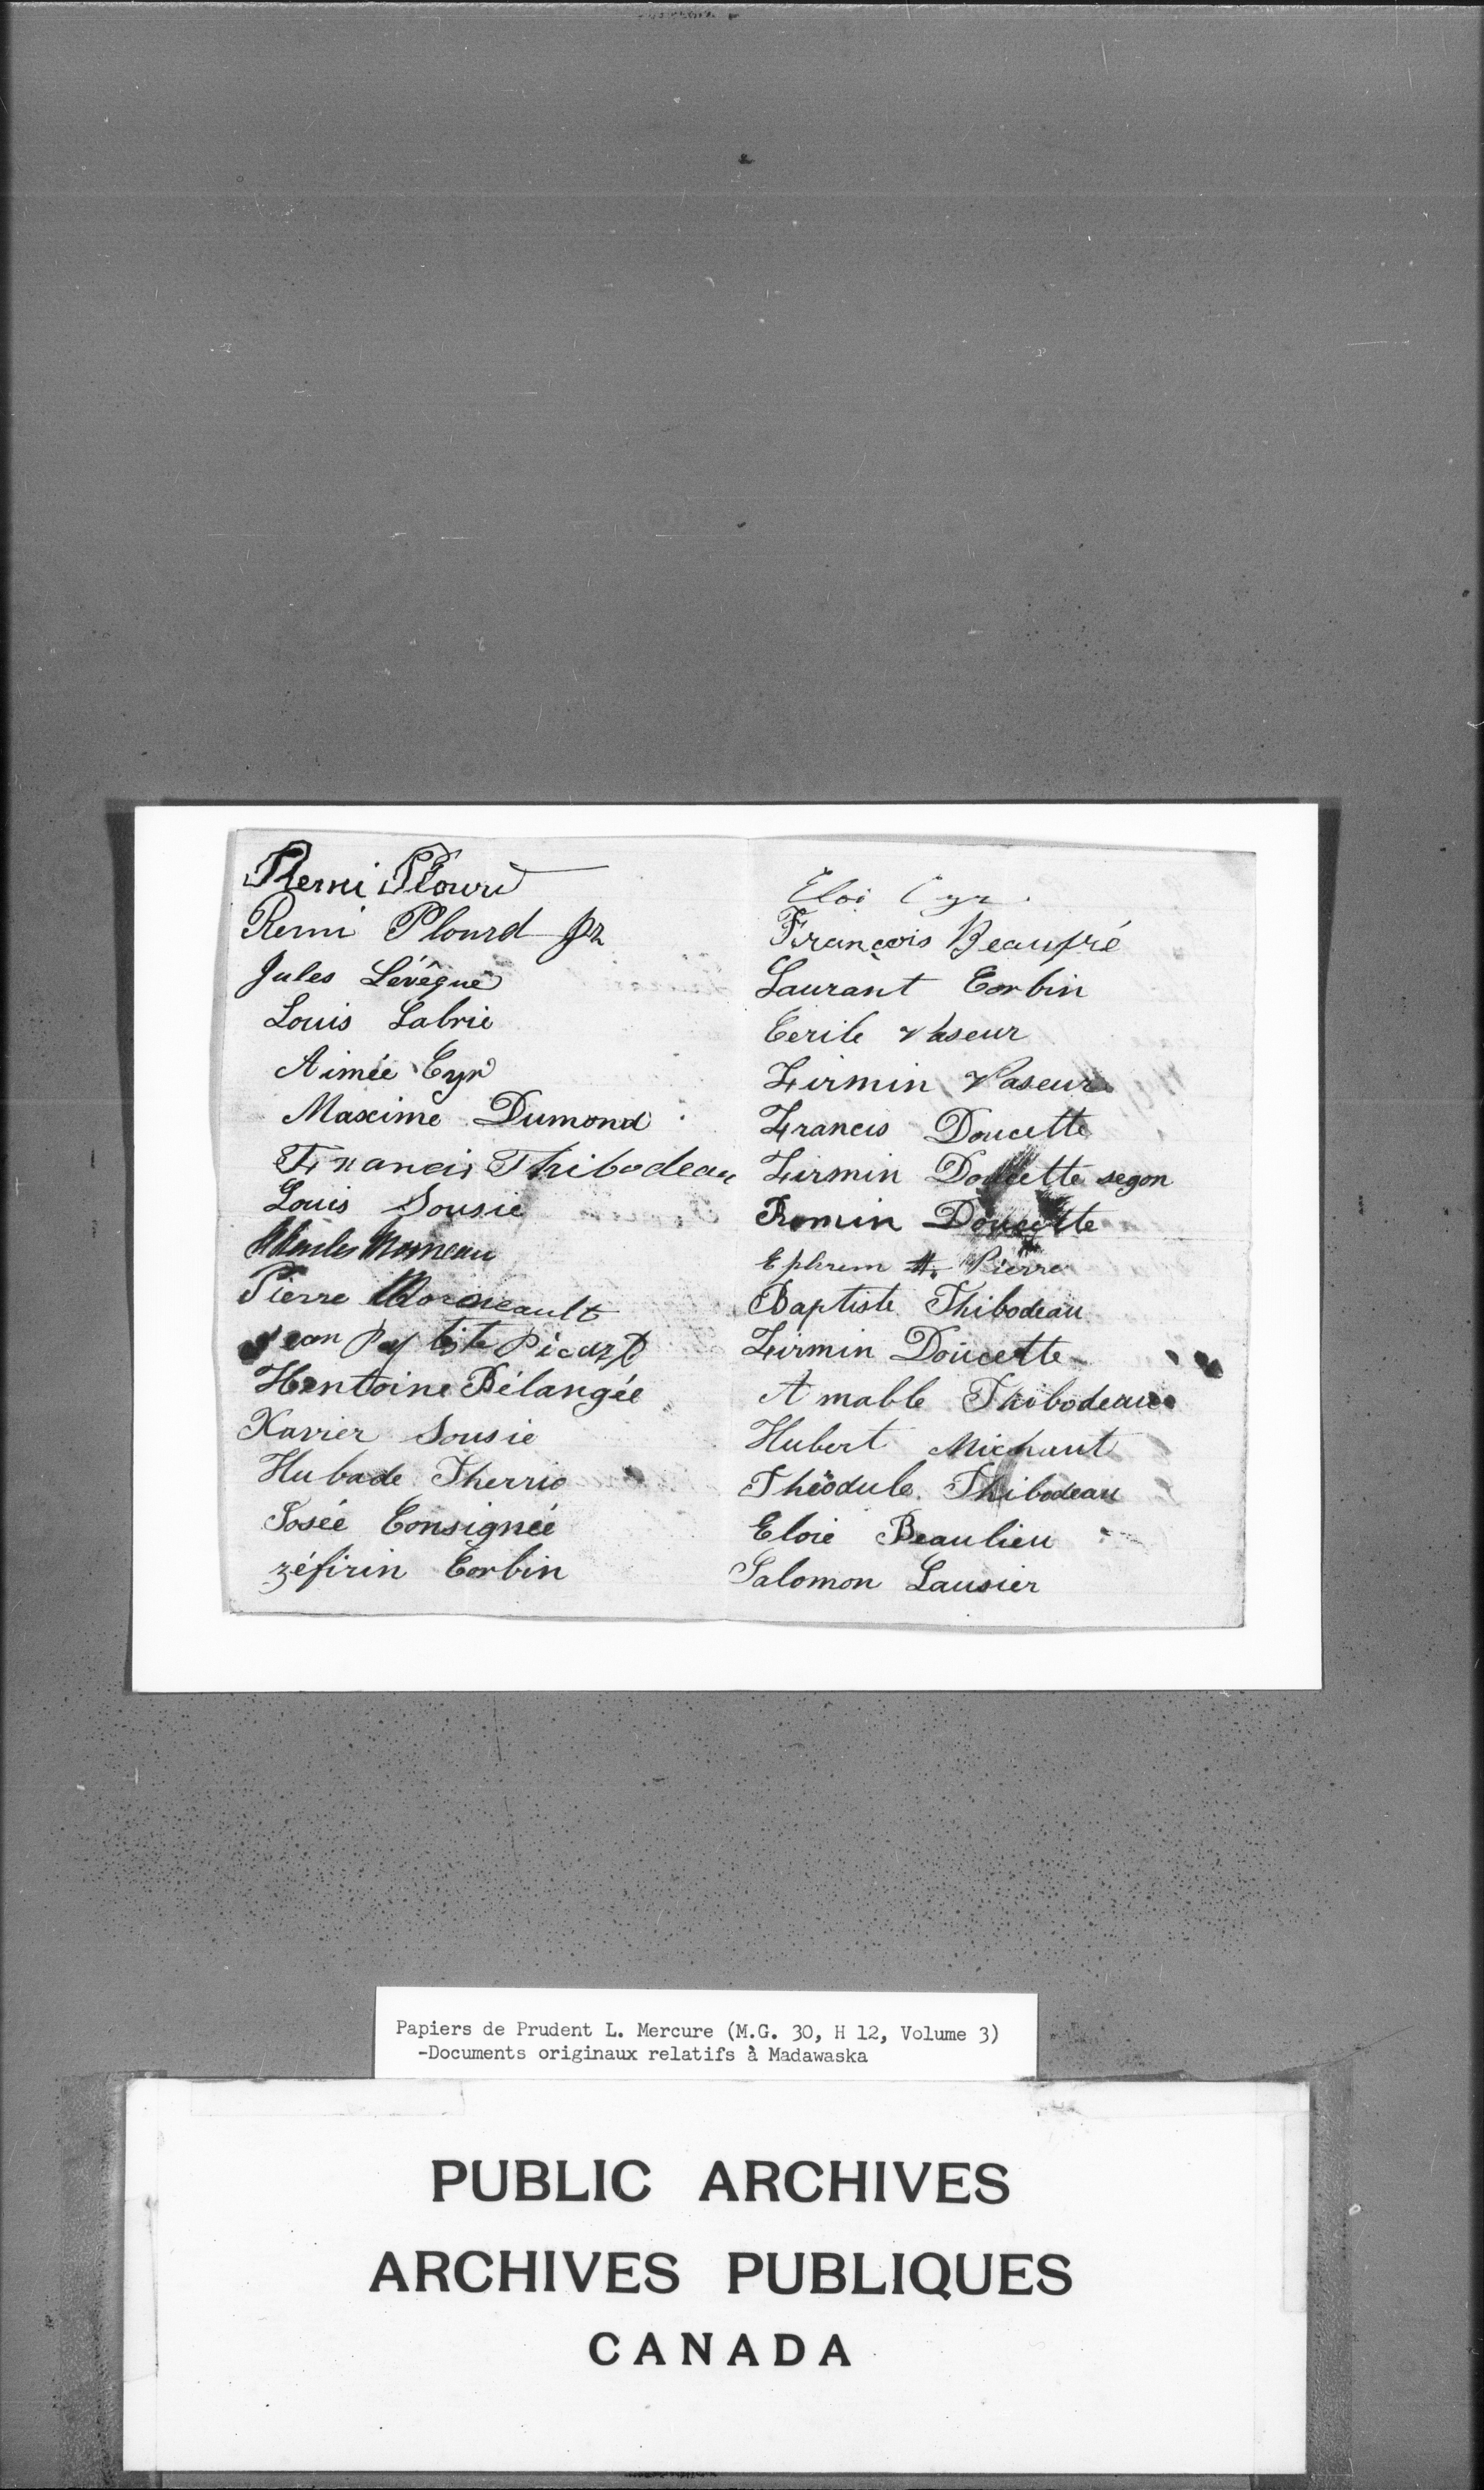 Remi Plourd
Remi Plourd Jr
Jules Lévêque
Louis Labrie
Aimée Cyr
Maxime Dumond
Francis Thibodeau
Louis Sousie
Charles Morneau
Pierre Morneault
Jean Baptiste Picard
Hentoine Bélangée
Xavier Sousie
Hubade Therrio
Josée Consignée
zéfirin Corbin
Eloi Cyr
François Beaupré
Laurant Corbin
Cerile Vaseur
Firmin Vaseur
Francis Doucette
Firmin Doucette segon
Romin Doucette
Ephrem A. Pierre
Baptiste Thibodeau
Firmin Doucette
Amable Thibodeau
Hubert Michaut
Théodule Thibodeau
Eloie Beaulieu
Salomon Lausier
Papiers de Prudent L. Mercure (M.G. 30, H 12, Volume 3)
-Documents originaux relatifs à Madawaska
PUBLIC ARCHIVES
ARCHIVES PUBLIQUES
CANADA